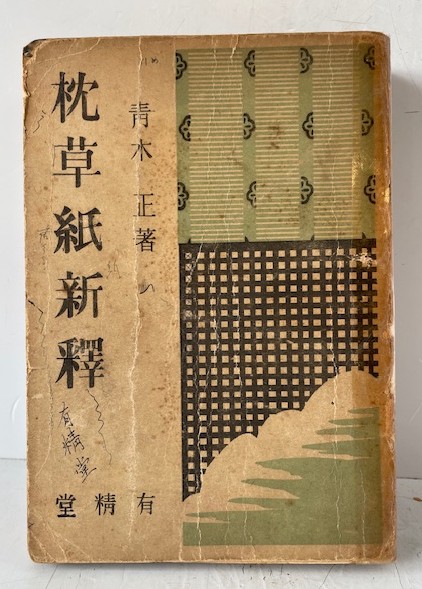 青木正著
枕草紙新釋
有精堂
堂精有